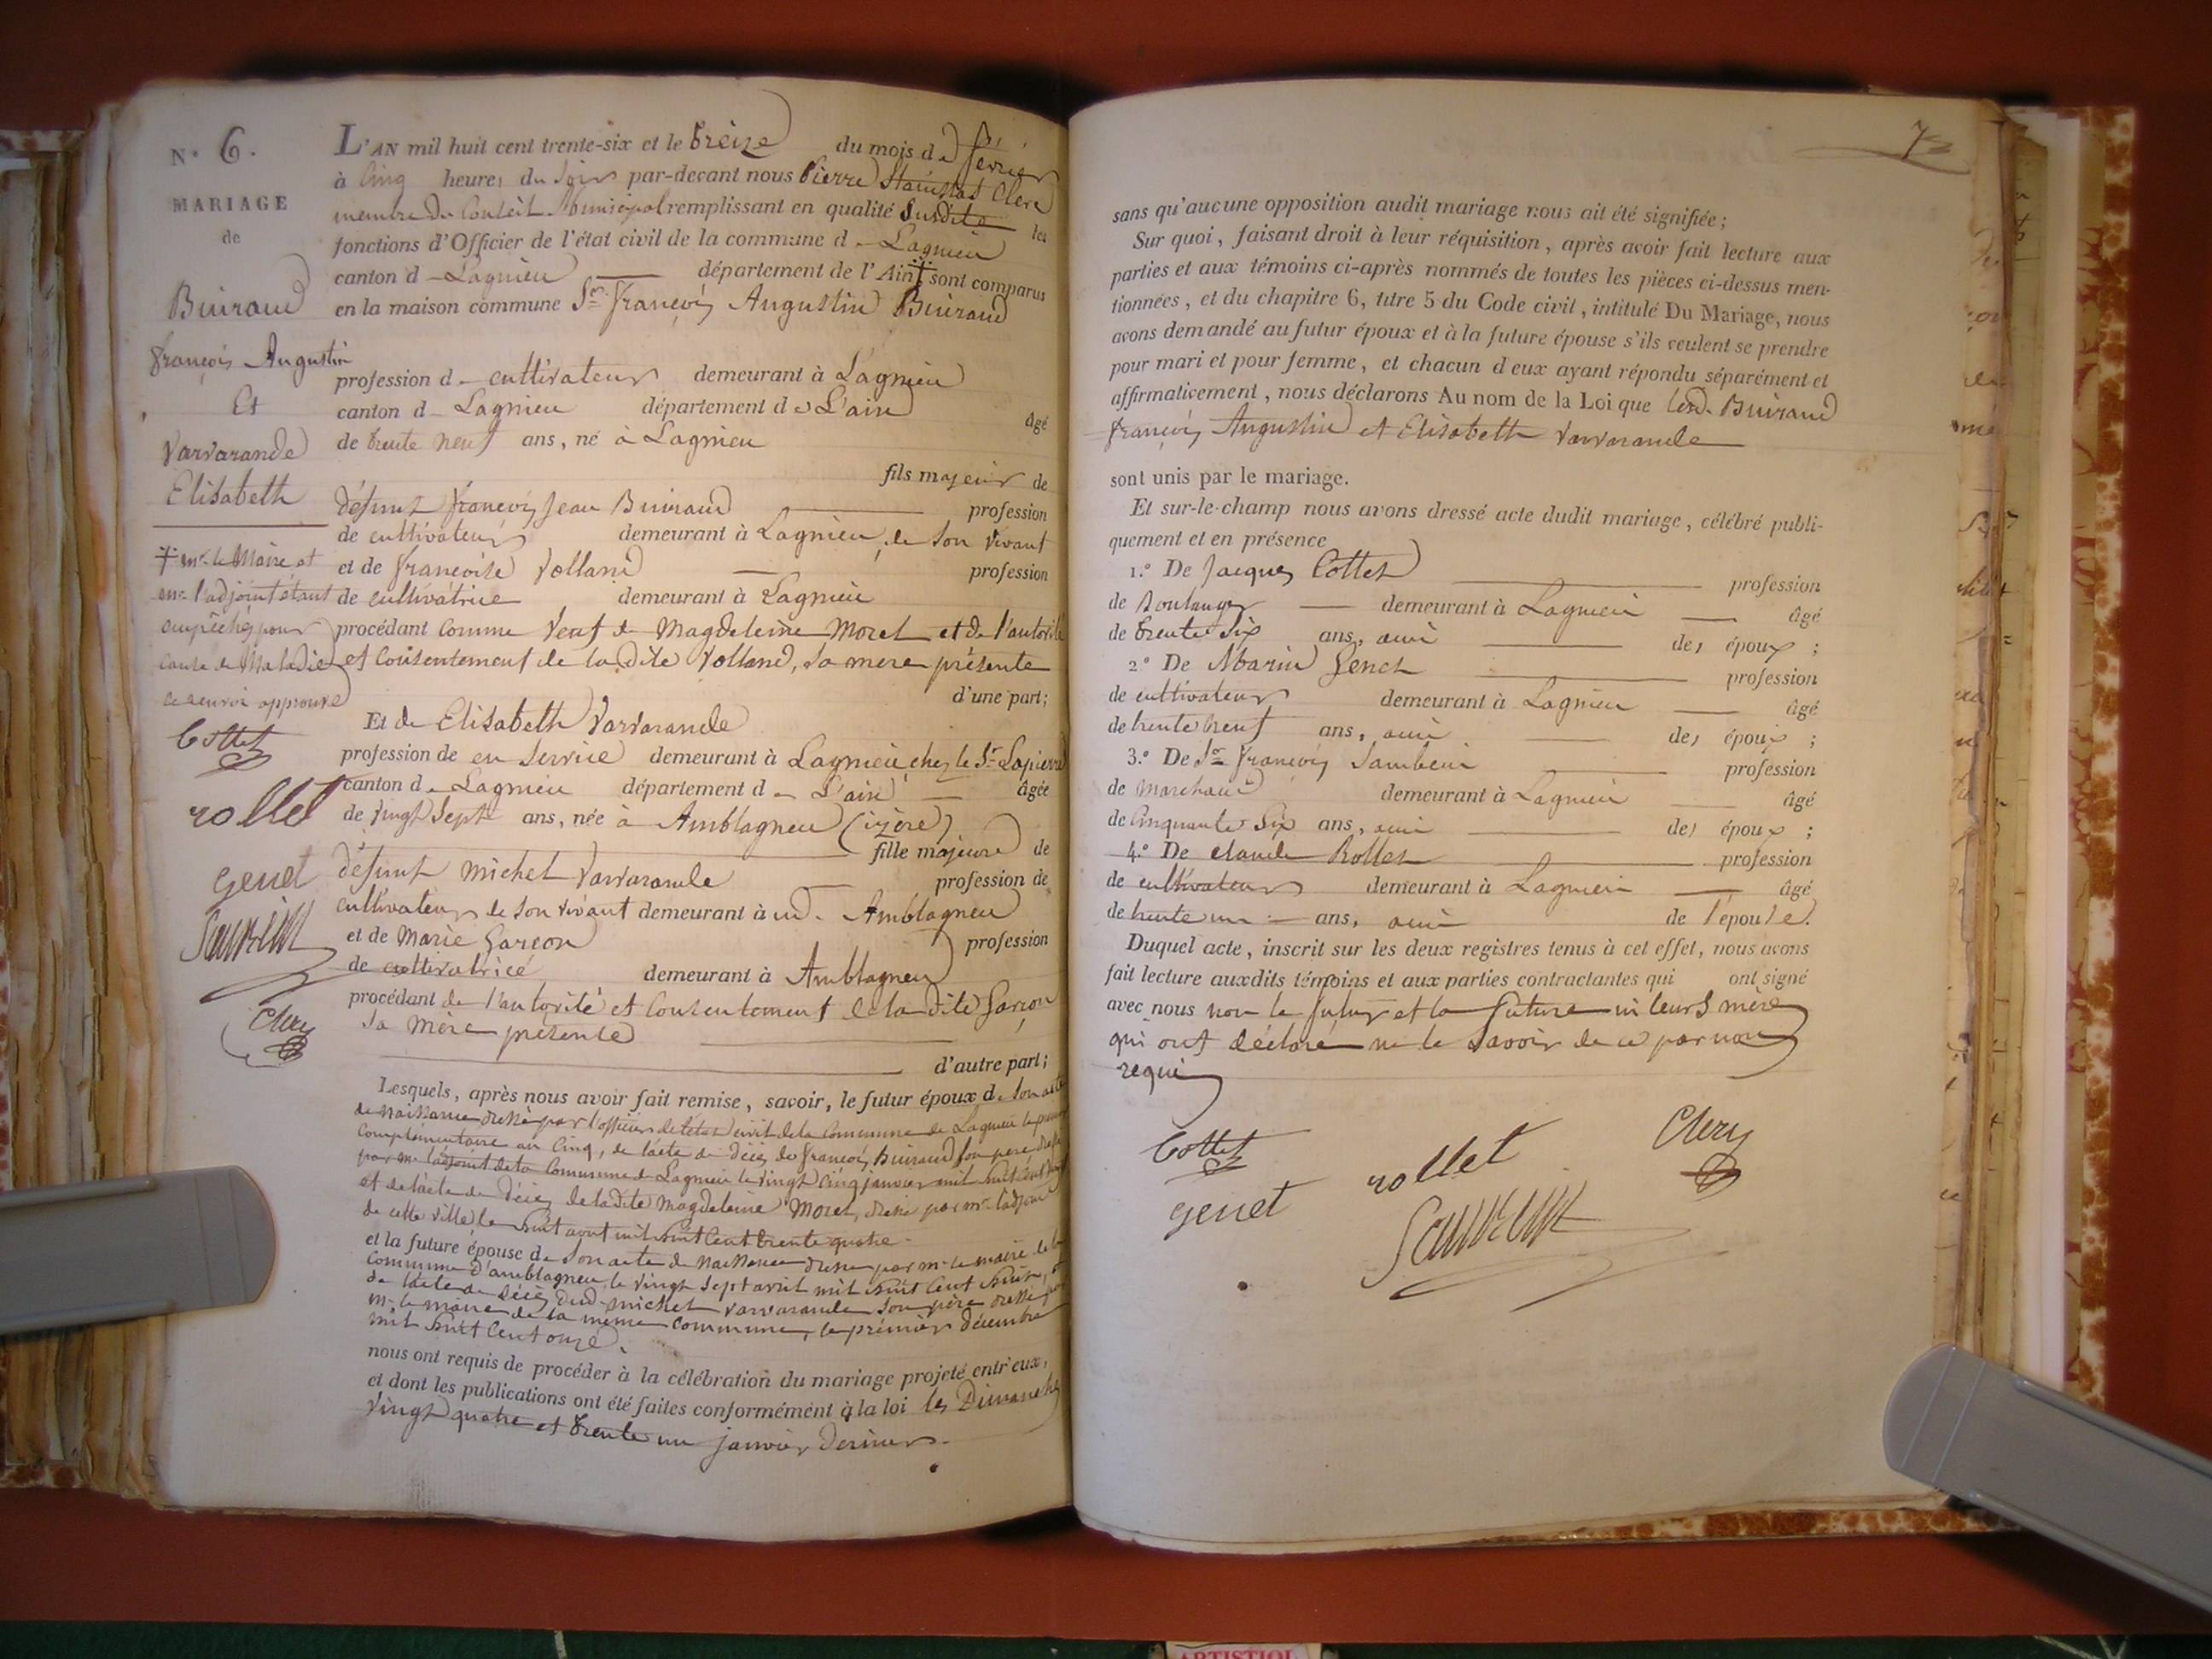 N.° 6.
MARIAGE
de
Buiraud
françois Augustin
Et
Varvarande
Elisabeth
† mr. le Maire et
mr. l'adjoint étant
empêchés pour
cause de Maladie
ce renvoi approuvé
Cottet
rollet
genet
Clery
L'AN mil huit cent trente-six et le treize du mois de février
à Cinq heures du Soir par-devant nous Pierre Stanislas Clere
membre du Conseil Municipal remplissant en qualité Susdite les
fonctions d'Officier de l'état civil de la commune d - Lagnieu
canton d - Lagnieu département de l'Ain † sont comparus
en la maison commune Sr. françois Augustin Buiraud
profession d - cultivateur demeurant à Lagnieu
canton d - Lagnieu département de L'ain âgé
de trente neuf ans, né à Lagnieu
fils majeur de
défunt françois Jean Buiraud profession
de cultivateur demeurant à Lagnieu, de Son Vivant
et de françoise Volland profession
de cultivatrice demeurant à Lagnieu
procédant Comme Veuf de Magdeleine Morel et de l'autorité
et Consentement de la dite Volland, sa mere présente
d'une part;
Et de Elisabeth Varvarande
profession de en Service demeurant à Lagnieu chez le Sr. Lapierre
canton d - Lagnieu département d - L'ain âgée
de Vingt Sept ans, née à Amblagneu (izère)
fille majeure de
défunt michel Varvarande profession de
cultivateur de Son vivant demeurant à ud. Amblagneu
et de Marie Garçon profession
de cultivatrice demeurant à Amblagneu
procédant de l'autorité et Consentement de la dite Garçon
Sa Mère présente
d'autre part;
Lesquels, après nous avoir fait remise, savoir, le futur époux de Son acte
de Naissance dressé par l'officier de l'état civil de la Commune de Lagnieu le premier
Complémentaire an Cinq, de l'acte de décès de françois Buiraud son pere dressé
par mr. l'adjoint de la Commune de Lagnieu le vingt Cinq janvier mil huit cent
et de l'acte de Décès de la dite Magdeleine Morel, dressé par mr. l'adjoint
de cette ville le huit aout mil huit Cent trente quatre.
et la future épouse de Son acte de Naissance dressé par mr. le maire de la
Commune d'amblagneu le Vingt Sept avril mil huit Cent huit, et
de l'acte de décès dud. michel varvarande Son père dressé par
mr. le maire de la meme Commune, le prémier décembre
mil huit Cent onze.
nous ont requis de procéder à la célébration du mariage projeté entr'eux,
et dont les publications ont été faites conformément à la loi les Dimanches
Vingt quatre et trente un janvier derniers.
7
sans qu'aucune opposition audit mariage nous ait été signifiée;
Sur quoi, faisant droit à leur réquisition, après avoir fait lecture aux
parties et aux témoins ci-après nommés de toutes les pièces ci-dessus men-
tionnées, et du chapitre 6, titre 5 du Code civil, intitulé Du Mariage, nous
avons demandé au futur époux et à la future épouse s'ils veulent se prendre
pour mari et pour femme, et chacun d'eux ayant répondu séparément et
affirmativement, nous déclarons Au nom de la Loi que Lesd. Buiraud
françois Augustin et Elisabeth Varvarande
sont unis par le mariage.
Et sur-le-champ nous avons dressé acte dudit mariage, célébré publi-
quement et en présence
1.° De Jacques Cottet profession
de Boulanger demeurant à Lagnieu âgé
de trente Six ans, ami des époux ;
2.° De Marin Genet profession
de cultivateur demeurant à Lagnieu âgé
de trente neuf ans, ami des époux ;
3.° De Sr. françois profession
de Marchand demeurant à Lagnieu âgé
de Cinquante Six ans, ami des époux ;
4.° De claude Rollet profession
de cultivateur demeurant à Lagnieu âgé
de trente un ans, ami de l'épouse.
Duquel acte, inscrit sur les deux registres tenus à cet effet, nous avons
fait lecture auxdits témoins et aux parties contractantes qui ont signé
avec nous non le futur et la future ni leurs mères
qui ont déclaré ne le Savoir de ce par nous
requis
Cottet
rollet
Clery
genet
ARTISTIQL